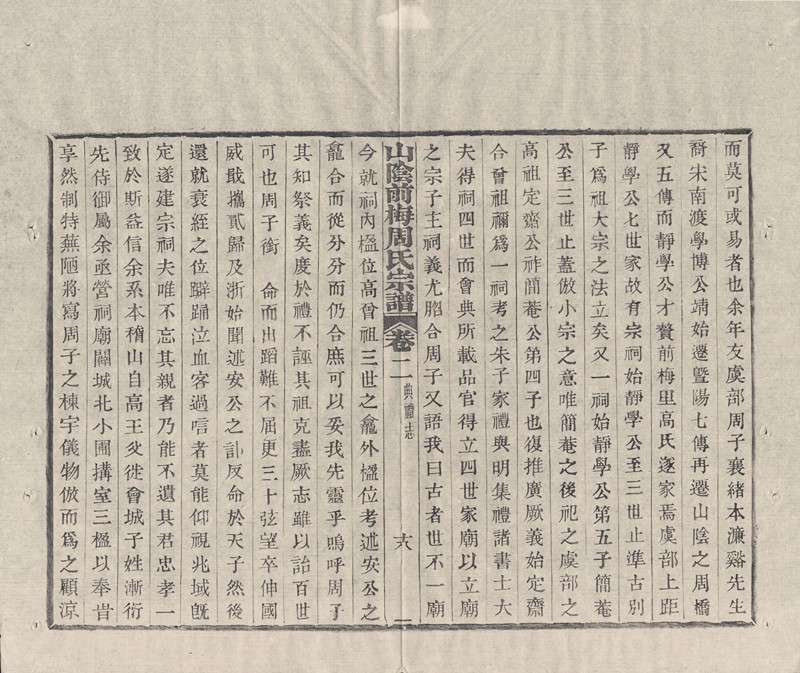 而莫可或易者也余年友虞部周子襄緒本濂谿先生
裔宋南渡學博公靖始遷暨陽七傳再遷山陰之周橋
又五傳而靜學公才贅前梅里高氏遂家焉虞部上距
靜學公七世家故有宗祠始靜學公至三世止準古別
子爲祖大宗之法立矣又一祠始靜學公第五子簡菴
公至三世止蓋倣小宗之意唯簡菴之後祀之虞部之
高祖定齋公祚簡菴公第四子也復推廣厥義始定齋
合曾祖禰爲一祠考之朱子家禮與明集禮諸書士大
夫得祠四世而會典所載品官得立四世家廟以立廟
之宗子主祠義尤脗合周子又語我曰古者世不一廟
山陰前梅周氏宗譜 卷二 典禮志 六
今就祠內楹位高曾祖三世之龕外楹位考述安公之
龕合而從分分而仍合庶可以妥我先靈乎嗚呼周子
其知祭義矣度於禮不誣其祖克盡厥志雖以詒百世
可也周子銜 命而出蹈難不屈更三十弦望卒伸國
威戢攜貳歸及浙始聞述安公之訃反命於天子然後
還就衰絰之位擗踊泣血容過唁者莫能仰視兆域旣
定遂建宗祠夫唯不忘其親者乃能不遺其君忠孝一
致於斯益信余系本稽山自高王父徙會城子姓漸衍
先侍御屬余亟營祠廟闢城北小圃搆室三楹以奉嘗
享然制特蕪陋將寫周子之棟宇儀物倣而爲之顧涼